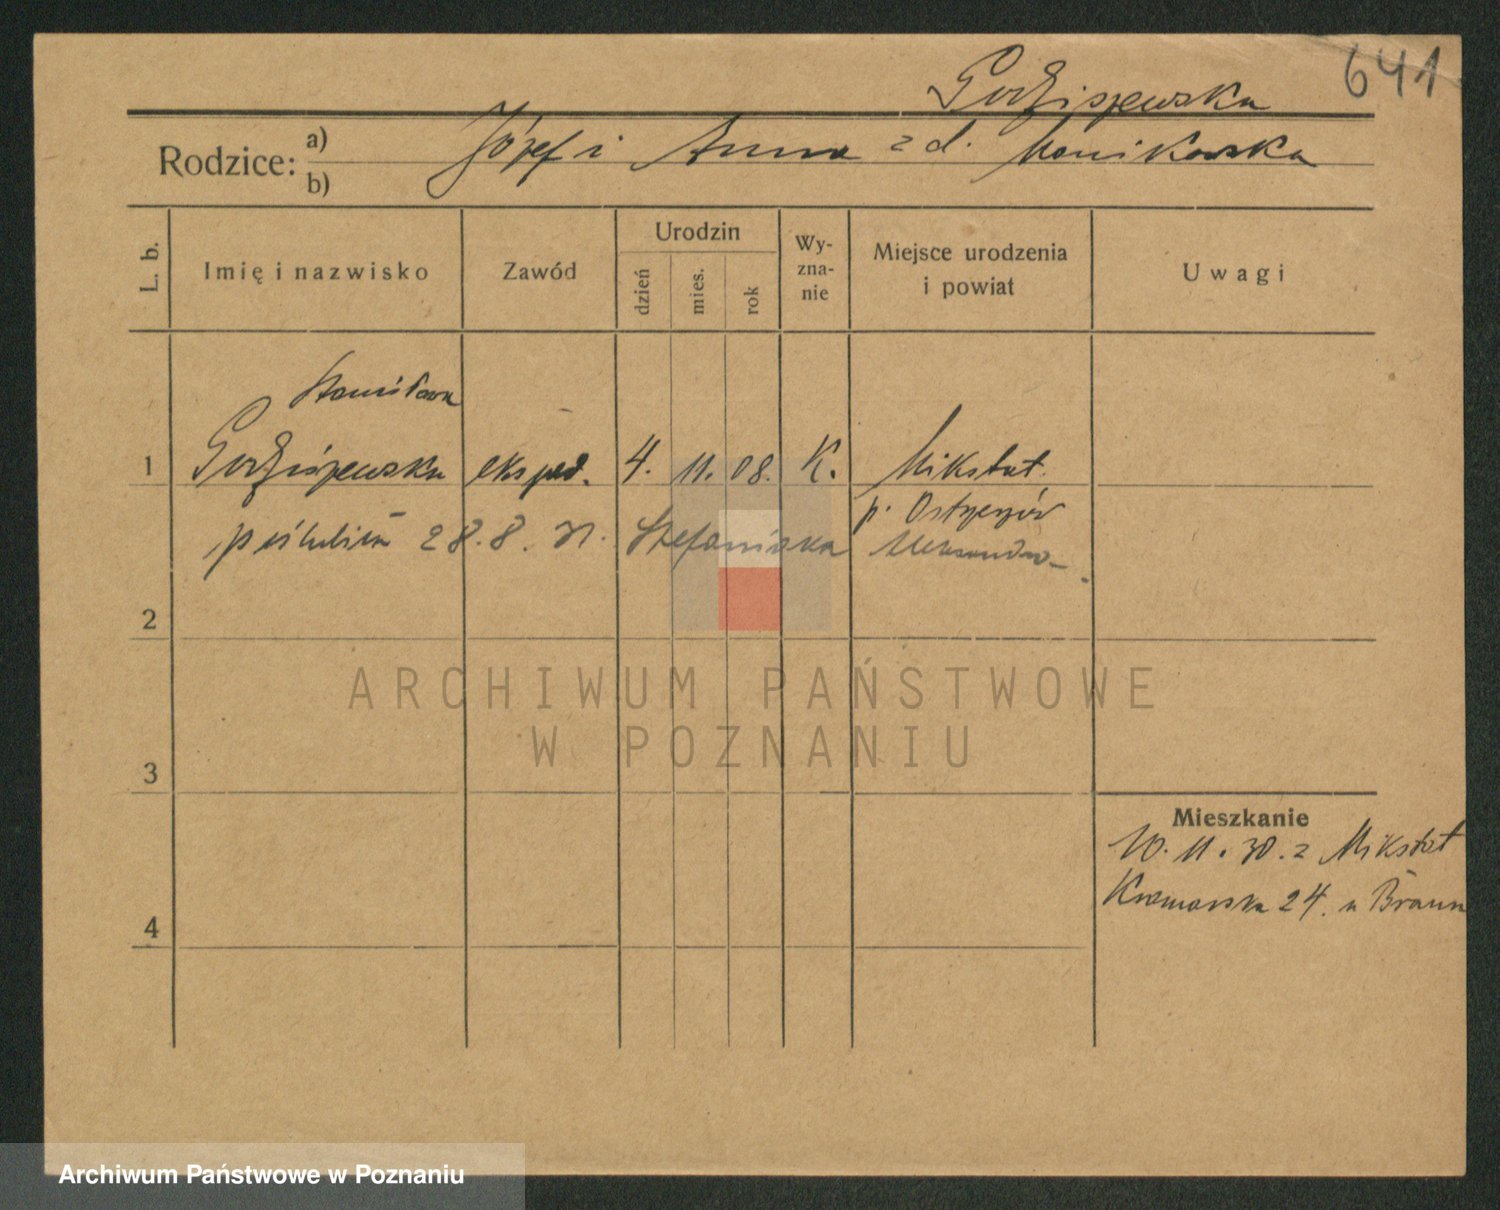 641
Godziszewska
Rodzice: a) b)
Józef i Anna z d. Monikowska
L. b.
Imię i nazwisko
Zawód
Urodzin
dzień
mies.
rok
Wy-
zna-
nie
Miejsce urodzenia
i powiat
Uwagi
Stanisława
1 Godziszewska eksped. 4. 11. 08. K. Mikstat
p. Ostrzeszów
poślubiła 28.8.31. Stefaniaka Aleksandra
2
3
4
Mieszkanie
10.11.30. z Mikstat
Kramarska 24. u Braun
ARCHIWUM PAŃSTWOWE
W POZNANIU
Archiwum Państwowe w Poznaniu